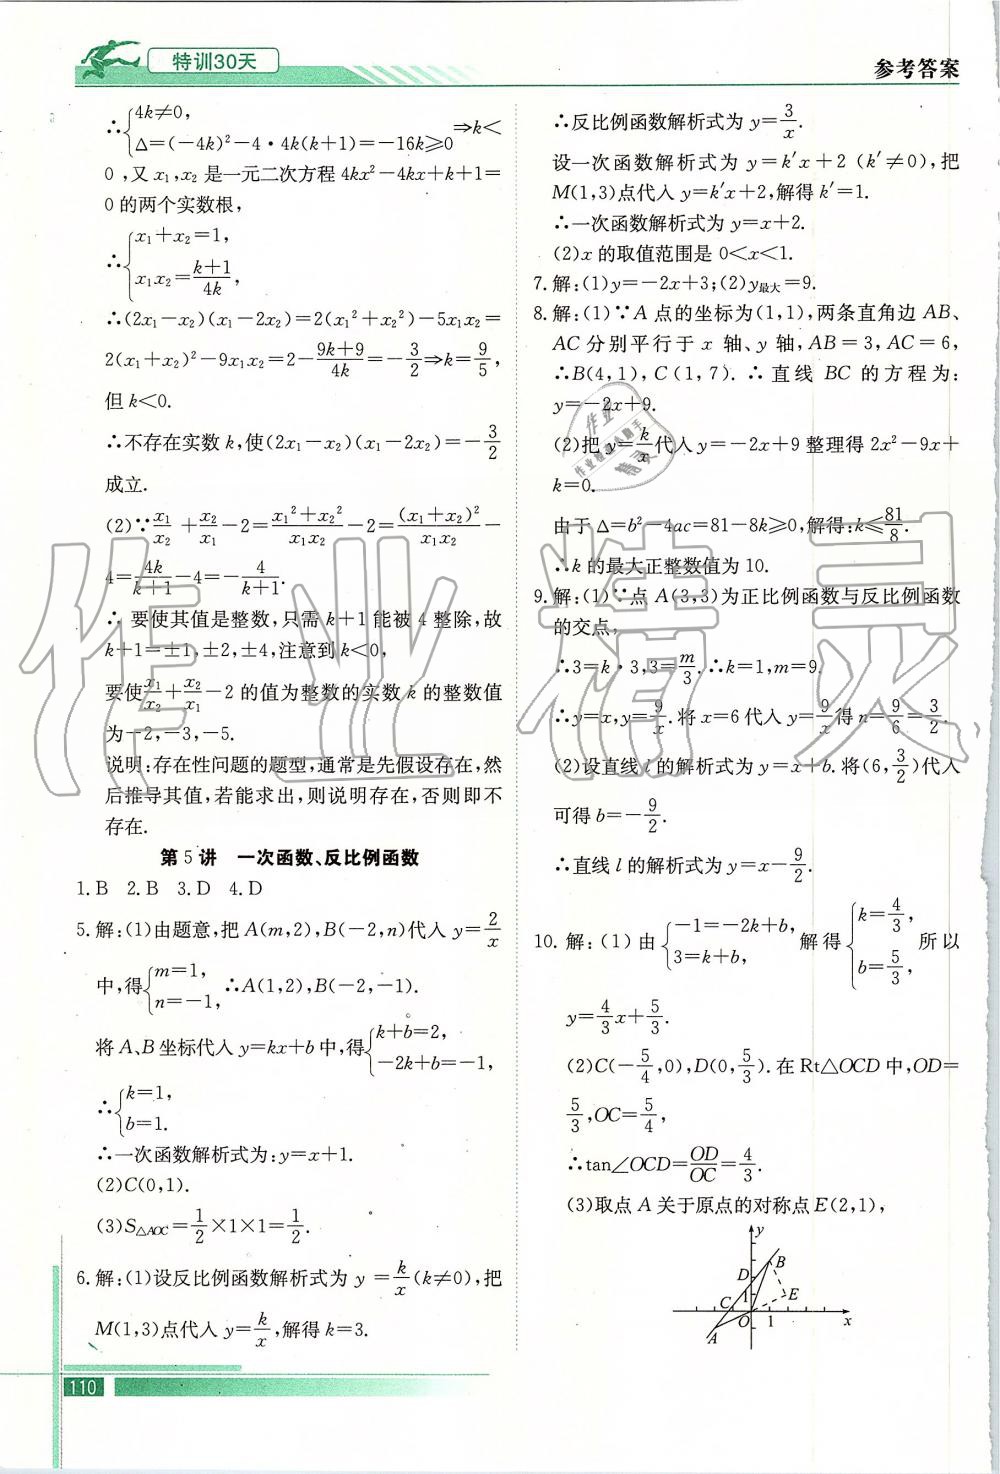 特训30天
参考答案
∴{4k≠0,
Δ=(-4k)²-4·4k(k+1)=-16k≥0 ⇒k<
0,又 x₁,x₂ 是一元二次方程 4kx²-4kx+k+1=
0的两个实数根,
∴{x₁+x₂=1,
x₁x₂=(k+1)/(4k),
∴(2x₁-x₂)(x₁-2x₂)=2(x₁²+x₂²)-5x₁x₂=
2(x₁+x₂)²-9x₁x₂=2-(9k+9)/(4k)=-3/2⇒k=9/5,
但 k<0.
∴不存在实数 k,使(2x₁-x₂)(x₁-2x₂)=-3/2
成立.
(2)∵x₁/x₂+x₂/x₁-2=(x₁²+x₂²)/(x₁x₂)-2=(x₁+x₂)²/(x₁x₂)-
4=4k/(k+1)-4=-4/(k+1).
∴ 要使其值是整数,只需 k+1 能被 4 整除,故
k+1=±1,±2,±4,注意到 k<0,
要使x₁/x₂+x₂/x₁-2 的值为整数的实数 k 的整数值
为-2,-3,-5.
说明:存在性问题的题型,通常是先假设存在,然
后推导其值,若能求出,则说明存在,否则即不
存在.
第 5 讲 一次函数、反比例函数
1.B 2.B 3.D 4.D
5.解:(1)由题意,把 A(m,2),B(-2,n)代入 y=2/x
中,得{m=1,
n=-1, ∴A(1,2),B(-2,-1).
将 A、B 坐标代入 y=kx+b 中,得{k+b=2,
-2k+b=-1,
∴{k=1,
b=1.
∴一次函数解析式为:y=x+1.
(2)C(0,1).
(3)S△AOC=1/2×1×1=1/2.
6.解:(1)设反比例函数解析式为 y =k/x(k≠0),把
M(1,3)点代入 y=k/x,解得 k=3.
∴反比例函数解析式为 y=3/x.
设一次函数解析式为 y=k′x+2 (k′≠0),把
M(1,3)点代入 y=k′x+2,解得 k′=1.
∴一次函数解析式为 y=x+2.
(2)x 的取值范围是 0<x<1.
7.解:(1)y=-2x+3;(2)y最大=9.
8.解:(1)∵A 点的坐标为(1,1),两条直角边 AB、
AC 分别平行于 x 轴、y 轴,AB=3,AC=6,
∴B(4,1),C(1,7). ∴直线 BC 的方程为:
y=-2x+9.
(2)把 y=k/x代入 y=-2x+9 整理得 2x²-9x+
k=0.
由于 Δ=b²-4ac=81-8k≥0,解得:k≤81/8.
∴k 的最大正整数值为 10.
9.解:(1)∵点 A(3,3)为正比例函数与反比例函数
的交点,
∴3=k·3,3=m/3.∴k=1,m=9.
∴y=x,y=9/x.将 x=6 代入 y=9/x得 n=9/6=3/2.
(2)设直线 l 的解析式为 y=x+b.将(6,3/2)代入
可得 b=-9/2.
∴直线 l 的解析式为 y=x-9/2.
10.解:(1)由{-1=-2k+b,
3=k+b, 解得{k=4/3,
b=5/3, 所以
y=4/3x+5/3.
(2)C(-5/4,0),D(0,5/3).在 Rt△OCD 中,OD=
5/3,OC=5/4,
∴tan∠OCD=OD/OC=4/3.
(3)取点 A 关于原点的对称点 E(2,1),
y
B
D
1
E
C
O 1 x
A
110
作业精灵